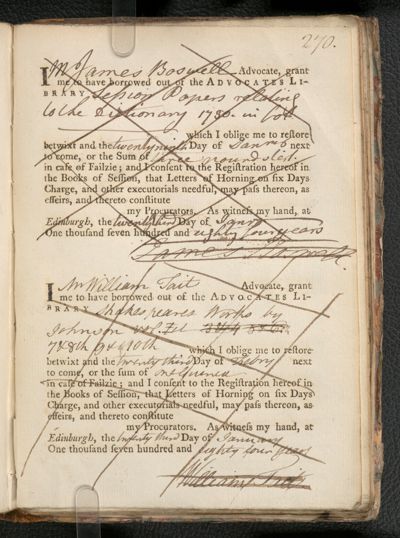 270.
I Mr James Boswell Advocate, grant
me to have borrowed out of the ADVOCATES LI-
BRARY Session Papers relating
to the Dictionary 1780. in
which I oblige me to restore
betwixt and the twenty ninth Day of next
to come, or the Sum of three pound Ster.
in case of Failzie; and I consent to the Registration hereof in
the Books of Session, that Letters of Horning on six Days
Charge, and other executorials needful, may pass thereon, as
effeirs, and thereto constitute
my Procurators. As witness my hand, at
Edinburgh, the twenty third Day of
One thousand seven hundred and eighty four years
James Boswell.
I Mr William Tait Advocate, grant
me to have borrowed out of the ADVOCATES LI-
BRARY Shakespeares Works by
Johnson
7th 8th 9th & 10th which I oblige me to restore
betwixt and the twenty third Day of Febry next
to come, or the sum of one Guinea
in case of Failzie; and I consent to the Registration hereof in
the Books of Session, that Letters of Horning on six Days
Charge, and other executorials needful, may pass thereon, as
effeirs, and thereto constitute
my Procurators. As witness my hand, at
Edinburgh, the twenty third Day of January
One thousand seven hundred and eighty four years
William Tait